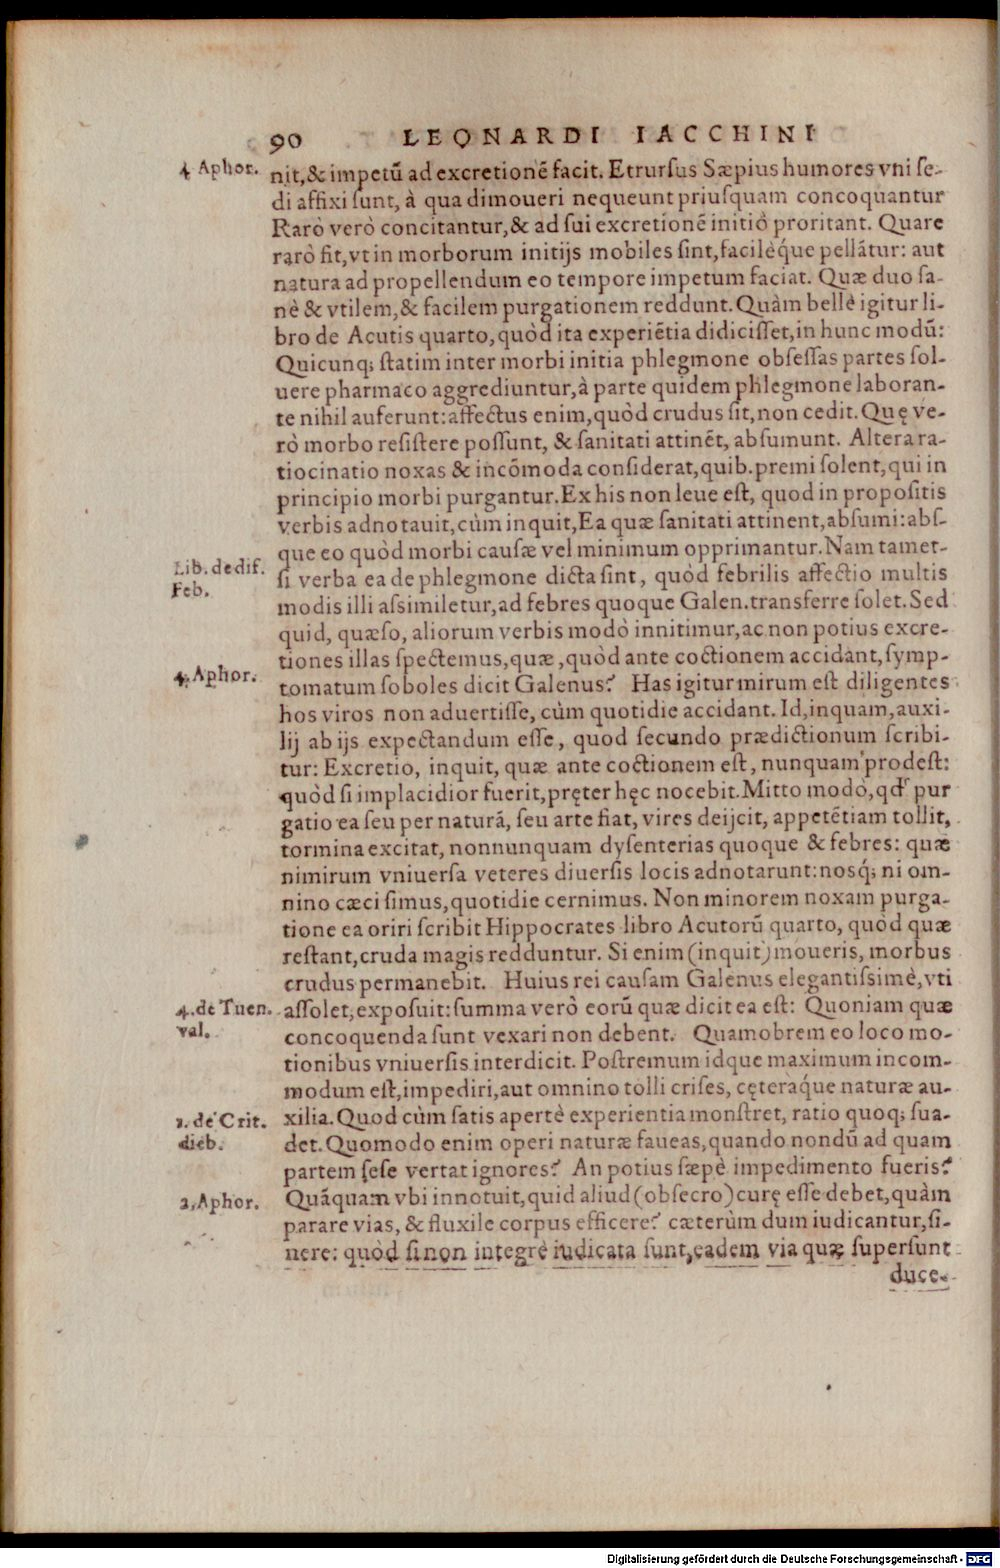 90 LEONARDI IACCHINI
4 Aphor.
nit,& impetū ad excretionē facit. Et rursus Sæpius humores vni se-
di affixi sunt, à qua dimoueri nequeunt priusquam concoquantur
Rarò verò concitantur,& ad sui excretionē initiò proritant. Quare
rarò fit, vt in morborum initijs mobiles sint, facilèq́ue pellātur: aut
natura ad propellendum eo tempore impetum faciat. Quæ duo sa-
nè & vtilem,& facilem purgationem reddunt. Quàm bellè igitur li-
bro de Acutis quarto, quòd ita experiētia didicisset, in hunc modū:
Quicunq; statim inter morbi initia phlegmone obsessas partes sol-
uere pharmaco aggrediuntur, à parte quidem phlegmone laboran-
te nihil auferunt: affectus enim, quòd crudus sit, non cedit. Quę ve-
rò morbo resistere possunt, & sanitati attinēt, absumunt. Altera ra-
tiocinatio noxas & incōmoda considerat, quib. premi solent, qui in
principio morbi purgantur. Ex his non leue est, quod in propositis
verbis adnotauit, cùm inquit, Ea quæ sanitati attinent, absumi: abs-
que eo quòd morbi causæ vel minimum opprimantur. Nam tamet-
Lib. de dif.
Feb.
si verba ea de phlegmone dicta sint, quòd febrilis affectio multis
modis illi assimiletur, ad febres quoque Galen. transferre solet. Sed
quid, quæso, aliorum verbis modò innitimur, ac non potius excre-
tiones illas spectemus, quæ, quòd ante coctionem accidant, symp-
4. Aphor.
tomatum soboles dicit Galenus? Has igitur mirum est diligentes
hos viros non aduertisse, cùm quotidie accidant. Id, inquam, auxi-
lij ab ijs expectandum esse, quod secundo prædictionum scribi-
tur: Excretio, inquit, quæ ante coctionem est, nunquam prodest:
quòd si implacidior fuerit, pręter hęc nocebit. Mitto modò, qd' pur
gatio ea seu per naturā, seu arte fiat, vires deijcit, appetētiam tollit,
tormina excitat, nonnunquam dysenterias quoque & febres: quæ
nimirum vniuersa veteres diuersis locis adnotarunt: nosq́; ni om-
nino cæci simus, quotidie cernimus. Non minorem noxam purga-
tione ea oriri scribit Hippocrates libro Acutorū quarto, quòd quæ
restant, cruda magis redduntur. Si enim (inquit) moueris, morbus
crudus permanebit. Huius rei causam Galenus elegantissimè, vti
4. de Tuen.
val.
assolet, exposuit: summa verò eorū quæ dicit ea est: Quoniam quæ
concoquenda sunt vexari non debent. Quamobrem eo loco mo-
tionibus vniuersis interdicit. Postremum idque maximum incom-
modum est, impediri, aut omnino tolli crises, cęteraq́ue naturæ au-
1. de Crit.
dieb.
xilia. Quod cùm satis apertè experientia monstret, ratio quoq; sua-
det. Quomodo enim operi naturæ faueas, quando nondū ad quam
partem sese vertat ignores? An potius sæpè impedimento fueris?
2. Aphor.
Quāquam vbi innotuit, quid aliud (obsecro) curę esse debet, quàm
parare vias, & fluxile corpus efficere? cæterùm dum iudicantur, si-
nere: quòd si non integrè iudicata sunt, eadem via quæ supersunt
duce-
Digitalisierung gefördert durch die Deutsche Forschungsgemeinschaft - DFG